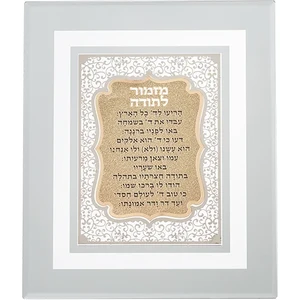 מזמור
לתודה
הריעו לה' כל הארץ:
עבדו את ד' בשמחה
באו לפניו ברננה:
דעו כי ד' הוא אלקים
הוא עשנו (ולא) ולו אנחנו
עמו וצאן מרעיתו:
באו שעריו
בתודה חצרתיו בתהלה
הודו לו ברכו שמו:
כי טוב ד' לעולם חסדו
ועד דר ודר אמונתו: